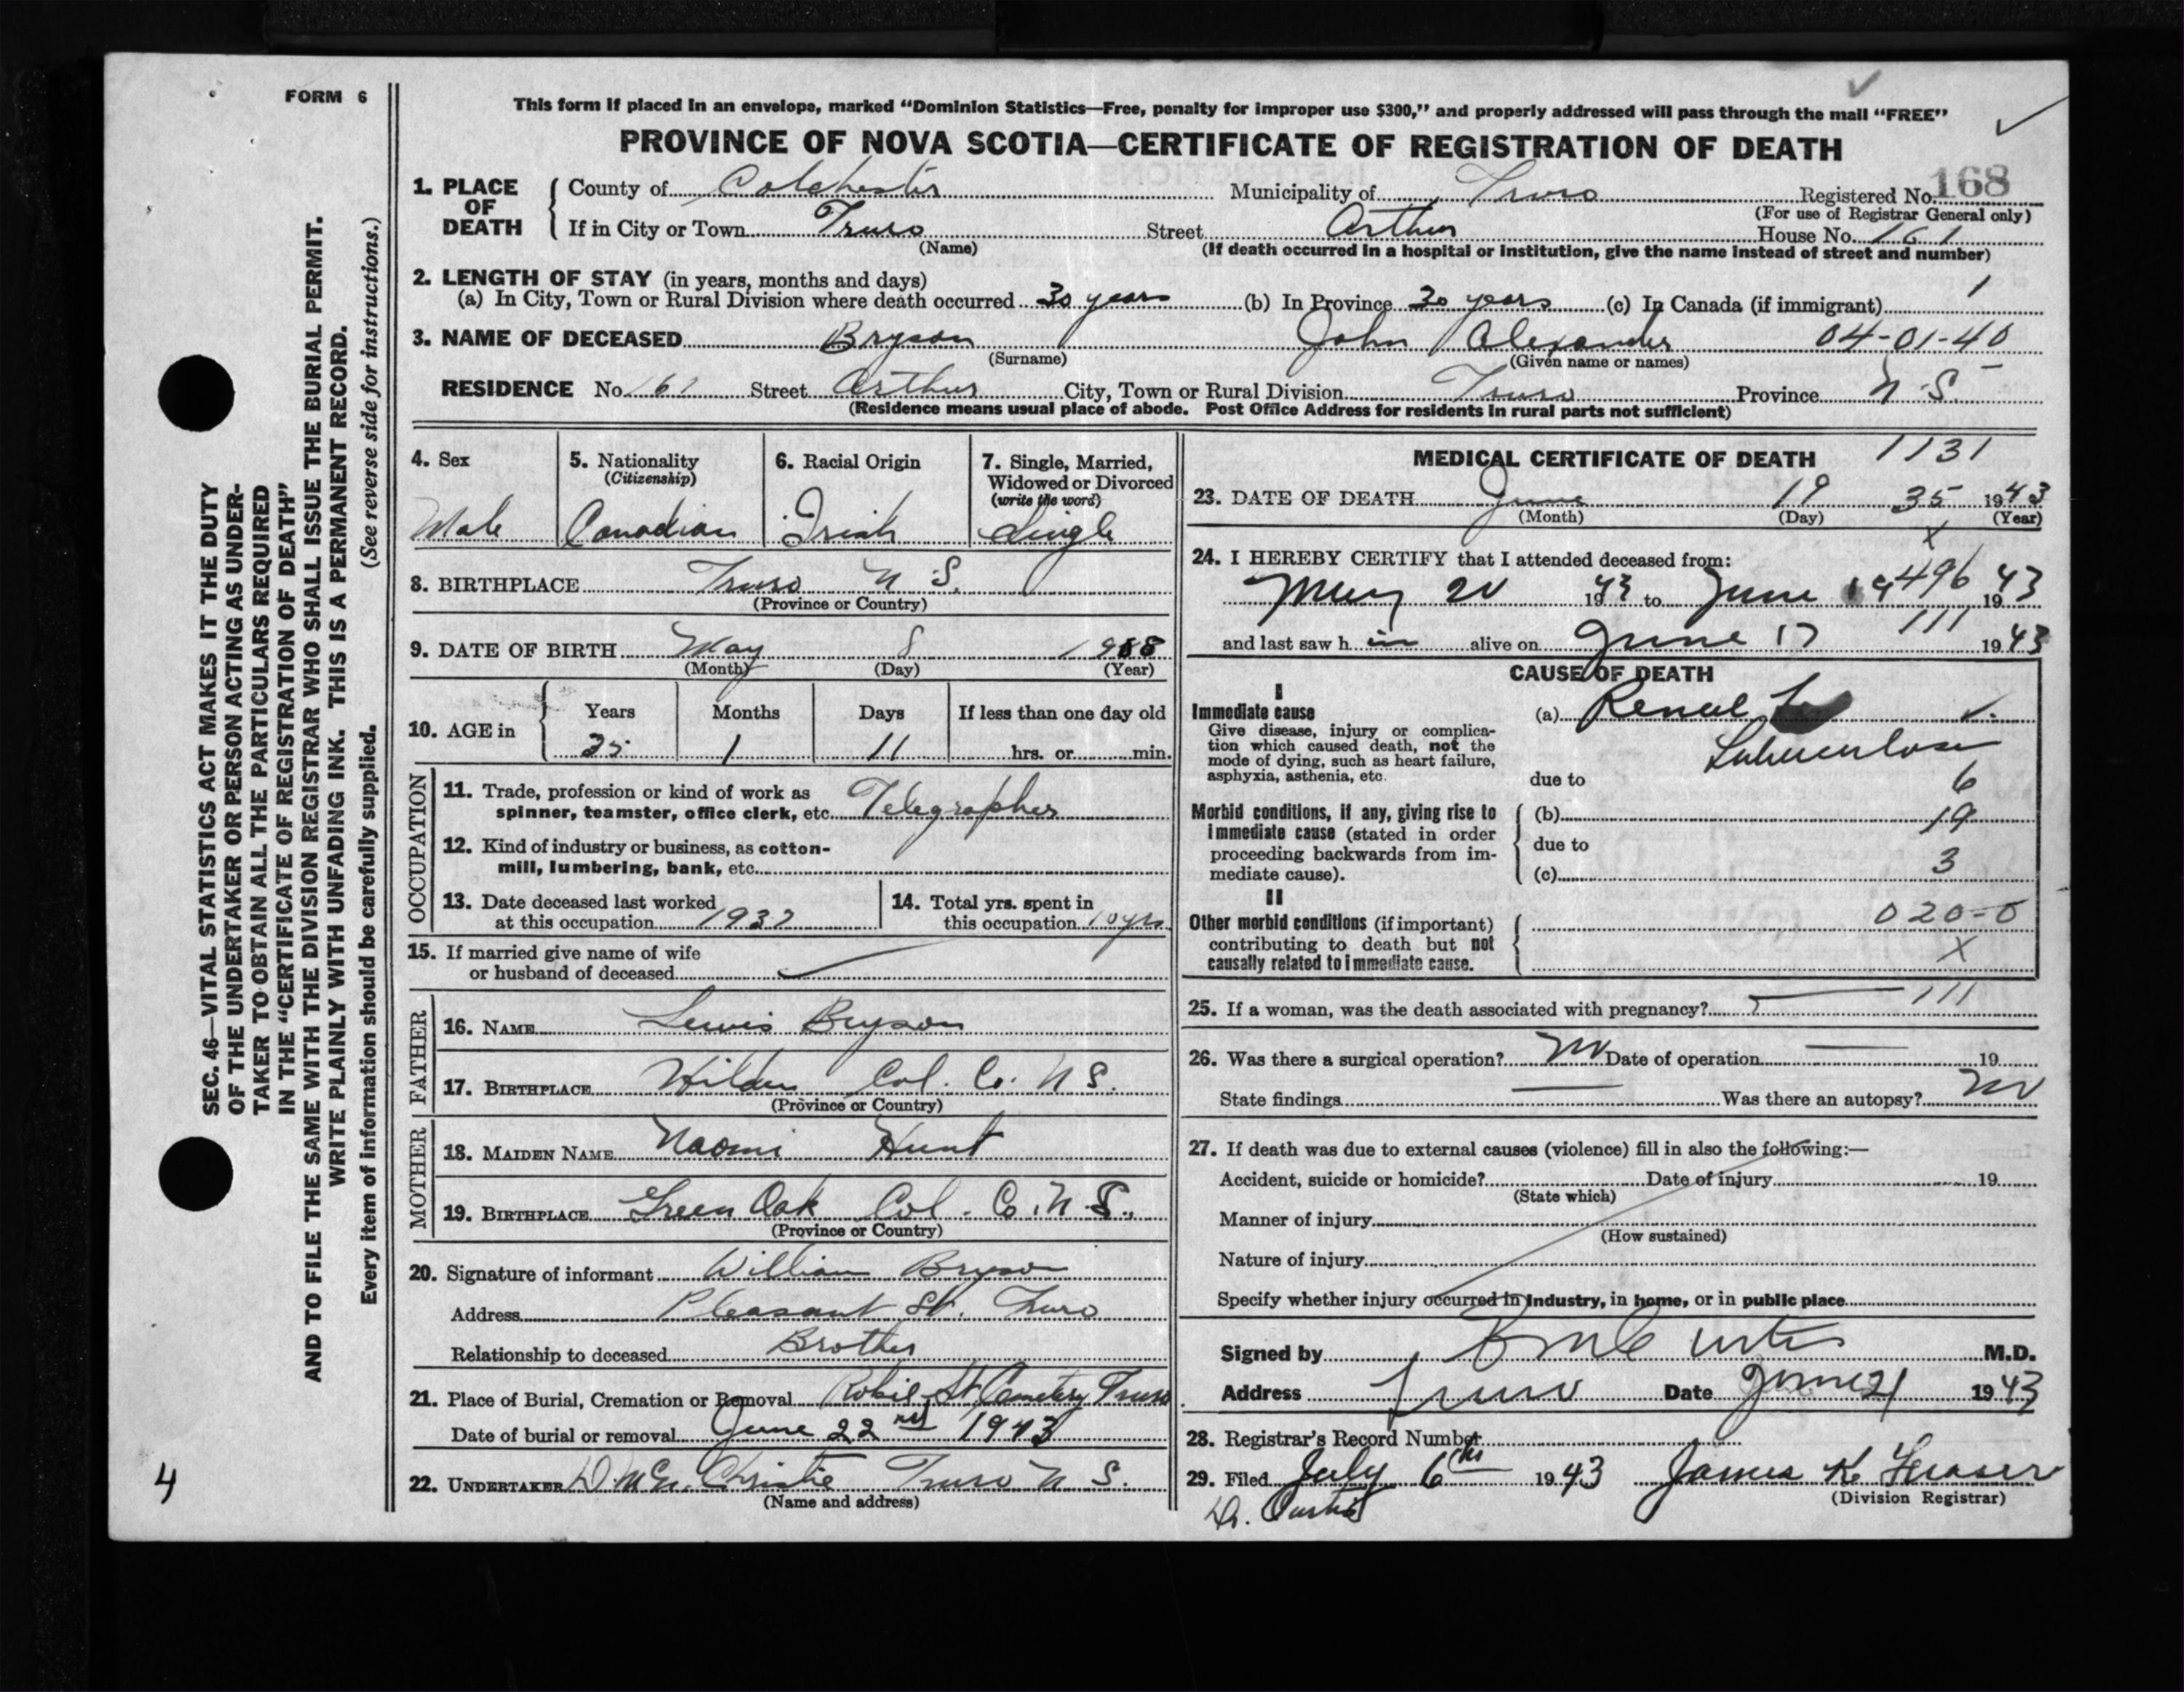 FORM 6
This form if placed in an envelope, marked “Dominion Statistics—Free, penalty for improper use $300,” and properly addressed will pass through the mail “FREE”
PROVINCE OF NOVA SCOTIA—CERTIFICATE OF REGISTRATION OF DEATH
1. PLACE OF DEATH County of Colchester Municipality of Truro Registered No. 168
(For use of Registrar General only)
If in City or Town Truro Street Arthur House No. 161
(Name) (If death occurred in a hospital or institution, give the name instead of street and number)
2. LENGTH OF STAY (in years, months and days) 1
(a) In City, Town or Rural Division where death occurred 30 years (b) In Province 30 years (c) In Canada (if immigrant)
3. NAME OF DECEASED Bryson John Alexander 04-01-40
(Surname) (Given name or names)
RESIDENCE No. 161 Street Arthur City, Town or Rural Division Truro Province N.S.
(Residence means usual place of abode. Post Office Address for residents in rural parts not sufficient)
4. Sex 5. Nationality 6. Racial Origin 7. Single, Married,
(Citizenship) Widowed or Divorced
(write the word)
Male Canadian Irish Single
8. BIRTHPLACE Truro N.S.
(Province or Country)
9. DATE OF BIRTH May 8
(Month) (Day) (Year)
10. AGE in Years Months Days If less than one day old
35 1 11 hrs. or min.
OCCUPATION
11. Trade, profession or kind of work as
spinner, teamster, office clerk, etc. Telegrapher
12. Kind of industry or business, as cotton-
mill, lumbering, bank, etc.
13. Date deceased last worked 14. Total yrs. spent in
at this occupation 1937 this occupation 10 yrs
15. If married give name of wife
or husband of deceased
FATHER
16. NAME Lewis Bryson
17. BIRTHPLACE Hilden Col. Co. N S.
(Province or Country)
MOTHER
18. MAIDEN NAME Naomi Hunt
19. BIRTHPLACE Green Oak Col. Co. N.S.
(Province or Country)
20. Signature of informant William Bryson
Address Pleasant St. Truro
Relationship to deceased Brother
21. Place of Burial, Cremation or Removal Robie St Cemetery Truro
Date of burial or removal June 22nd 1943
22. UNDERTAKER Christie Truro N S.
(Name and address)
MEDICAL CERTIFICATE OF DEATH 1131
23. DATE OF DEATH June 19 35 1943
(Month) (Day) (Year)
X
24. I HEREBY CERTIFY that I attended deceased from: 496
May 20 1943 to June 19 1943
111
and last saw h im alive on June 17 1943
CAUSE OF DEATH
I
Immediate cause (a) Renal
Give disease, injury or complica-
tion which caused death, not the
mode of dying, such as heart failure,
asphyxia, asthenia, etc.
Tuberculosis
due to 6
Morbid conditions, if any, giving rise to
immediate cause (stated in order
proceeding backwards from im-
mediate cause).
(b) 19
due to
(c) 3
II
Other morbid conditions (if important) 020-0
contributing to death but not
causally related to immediate cause. X
25. If a woman, was the death associated with pregnancy? 111
26. Was there a surgical operation? No Date of operation 19
State findings Was there an autopsy? No
27. If death was due to external causes (violence) fill in also the following:—
Accident, suicide or homicide? Date of injury 19
(State which)
Manner of injury
(How sustained)
Nature of injury
Specify whether injury occurred in industry, in home, or in public place
Signed by Curtis M.D.
Address Truro Date June 21 1943
28. Registrar's Record Number
29. Filed July 6th 1943 James K Fraser
(Division Registrar)
Dr. Curtis
SEC. 46—VITAL STATISTICS ACT MAKES IT THE DUTY
OF THE UNDERTAKER OR PERSON ACTING AS UNDER-
TAKER TO OBTAIN ALL THE PARTICULARS REQUIRED
IN THE “CERTIFICATE OF REGISTRATION OF DEATH”
AND TO FILE THE SAME WITH THE DIVISION REGISTRAR WHO SHALL ISSUE THE BURIAL PERMIT.
WRITE PLAINLY WITH UNFADING INK. THIS IS A PERMANENT RECORD.
Every item of information should be carefully supplied. (See reverse side for instructions.)
4